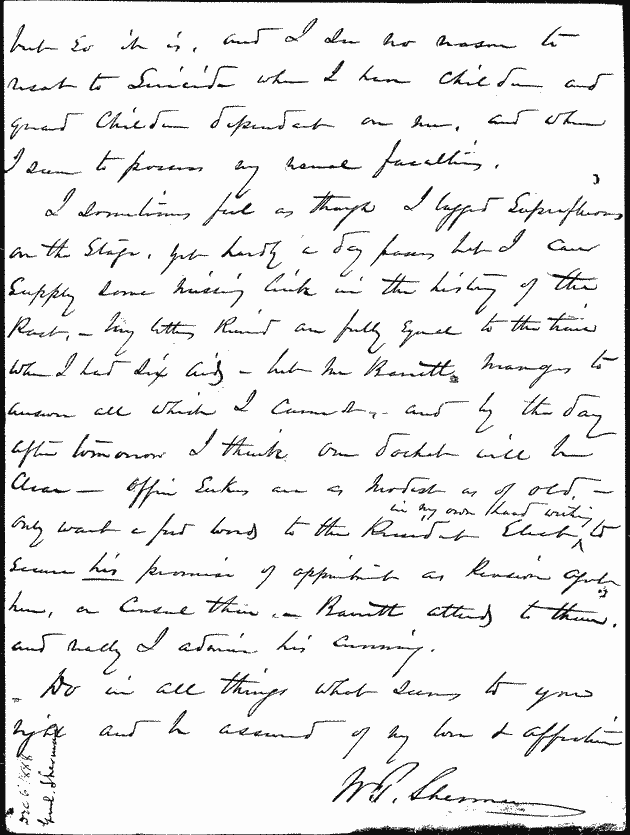 but so it is, and I see no reason to
resort to Suicide when I have Children and
grand Children dependent on me, and when
I seem to possess my usual faculties.
I sometimes feel as though I lagged Superfluous
on the Stage, yet hardly a day passes but I can
Supply some missing link in the history of the
Past. – My letters Rec'd are fully Equal to the time
when I had Six Aids – but Mr Barrett manages to
answer all which I cannot, – and by the day
after tomorrow I think our docket will be
Clear – Office Seekers are as Modest as of old, –
in my own hand writing
only want a few words to the President Elect ^ to
Secure his promise of appointment as Pension Agent
here, or Consul there. – Barrett attends to them,
and really I admire his cunning.
Do in all things what seems to you
right and be assured of my love & affection
W.T. Sherman
Dec 6, 1888
Genl. Sherman